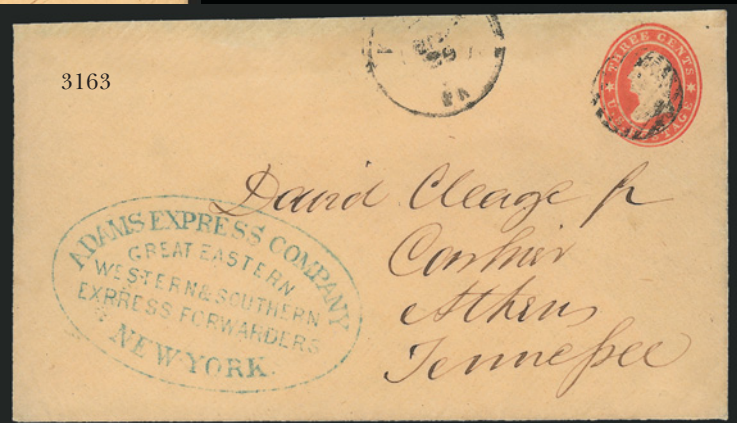 3163
THREE CENTS
U.S. POSTAGE
David Cleage Jr
Cashier
Athens
Tennessee
ADAMS EXPRESS COMPANY
GREAT EASTERN
WESTERN & SOUTHERN
EXPRESS FORWARDERS
NEW-YORK.